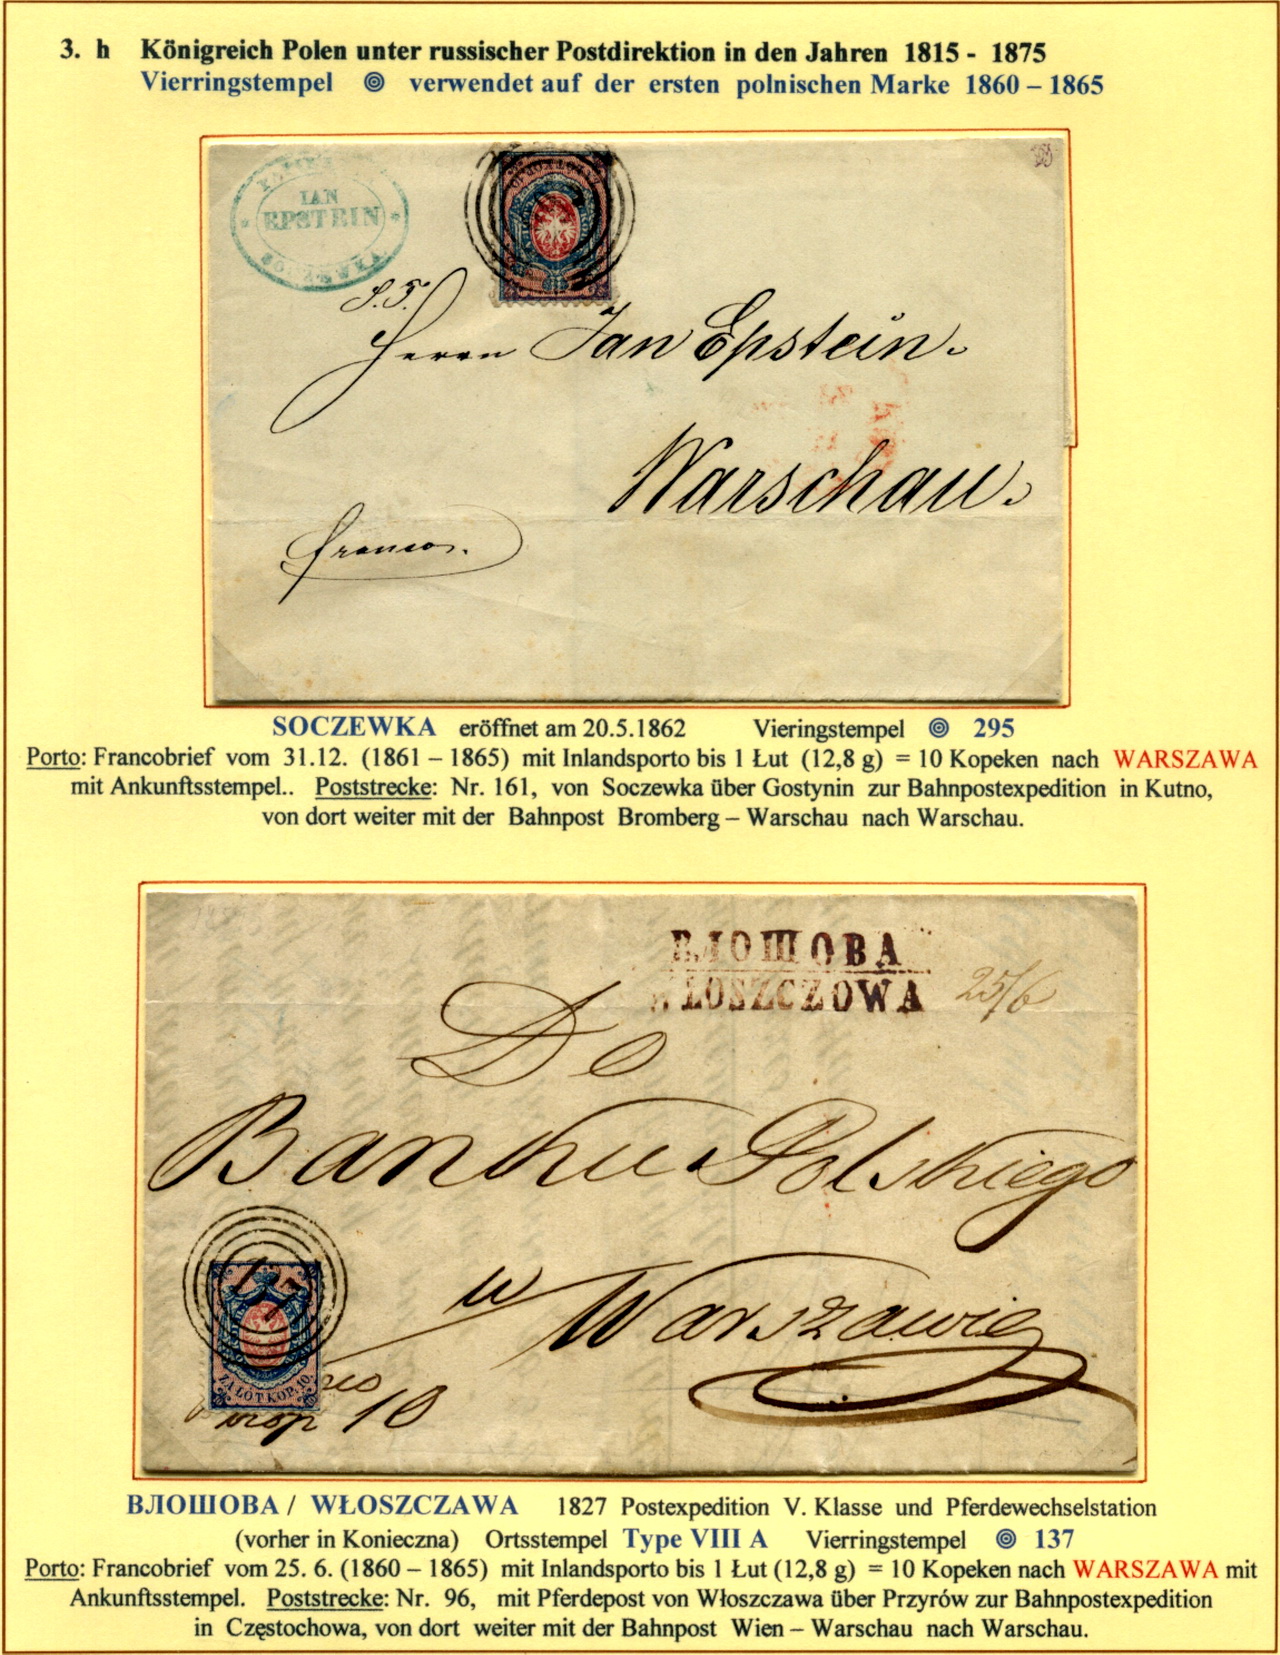 3. h Königreich Polen unter russischer Postdirektion in den Jahren 1815 - 1875
Vierringstempel verwendet auf der ersten polnischen Marke 1860 – 1865
IAN
EPSTEIN
SOCZEWKA
S. T.
Herrn Jan Epstein.
Warschau.
franco.
SOCZEWKA eröffnet am 20.5.1862 Vieringstempel 295
Porto: Francobrief vom 31.12. (1861 – 1865) mit Inlandsporto bis 1 Łut (12,8 g) = 10 Kopeken nach WARSZAWA
mit Ankunftsstempel.. Poststrecke: Nr. 161, von Soczewka über Gostynin zur Bahnpostexpedition in Kutno,
von dort weiter mit der Bahnpost Bromberg – Warschau nach Warschau.
ВЛОШОВА
WŁOSZCZOWA 25/6
Do
Banku Polskiego
w Warszawie
137
ZA ŁÓT KOP. 10
10
ВЛОШОВА / WŁOSZCZAWA 1827 Postexpedition V. Klasse und Pferdewechselstation
(vorher in Konieczna) Ortsstempel Type VIII A Vierringstempel 137
Porto: Francobrief vom 25. 6. (1860 – 1865) mit Inlandsporto bis 1 Łut (12,8 g) = 10 Kopeken nach WARSZAWA mit
Ankunftsstempel. Poststrecke: Nr. 96, mit Pferdepost von Włoszczawa über Przyrów zur Bahnpostexpedition
in Częstochowa, von dort weiter mit der Bahnpost Wien – Warschau nach Warschau.